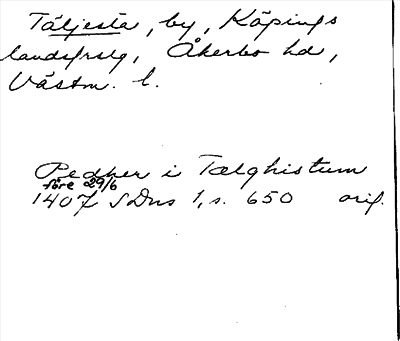 Täljesta, by, Köpings
landsfrslg, Åkerbo hd,
Västm. l.
Pedher i Tælghistum
före 29/6
1407 SDns 1, s. 650 orig.